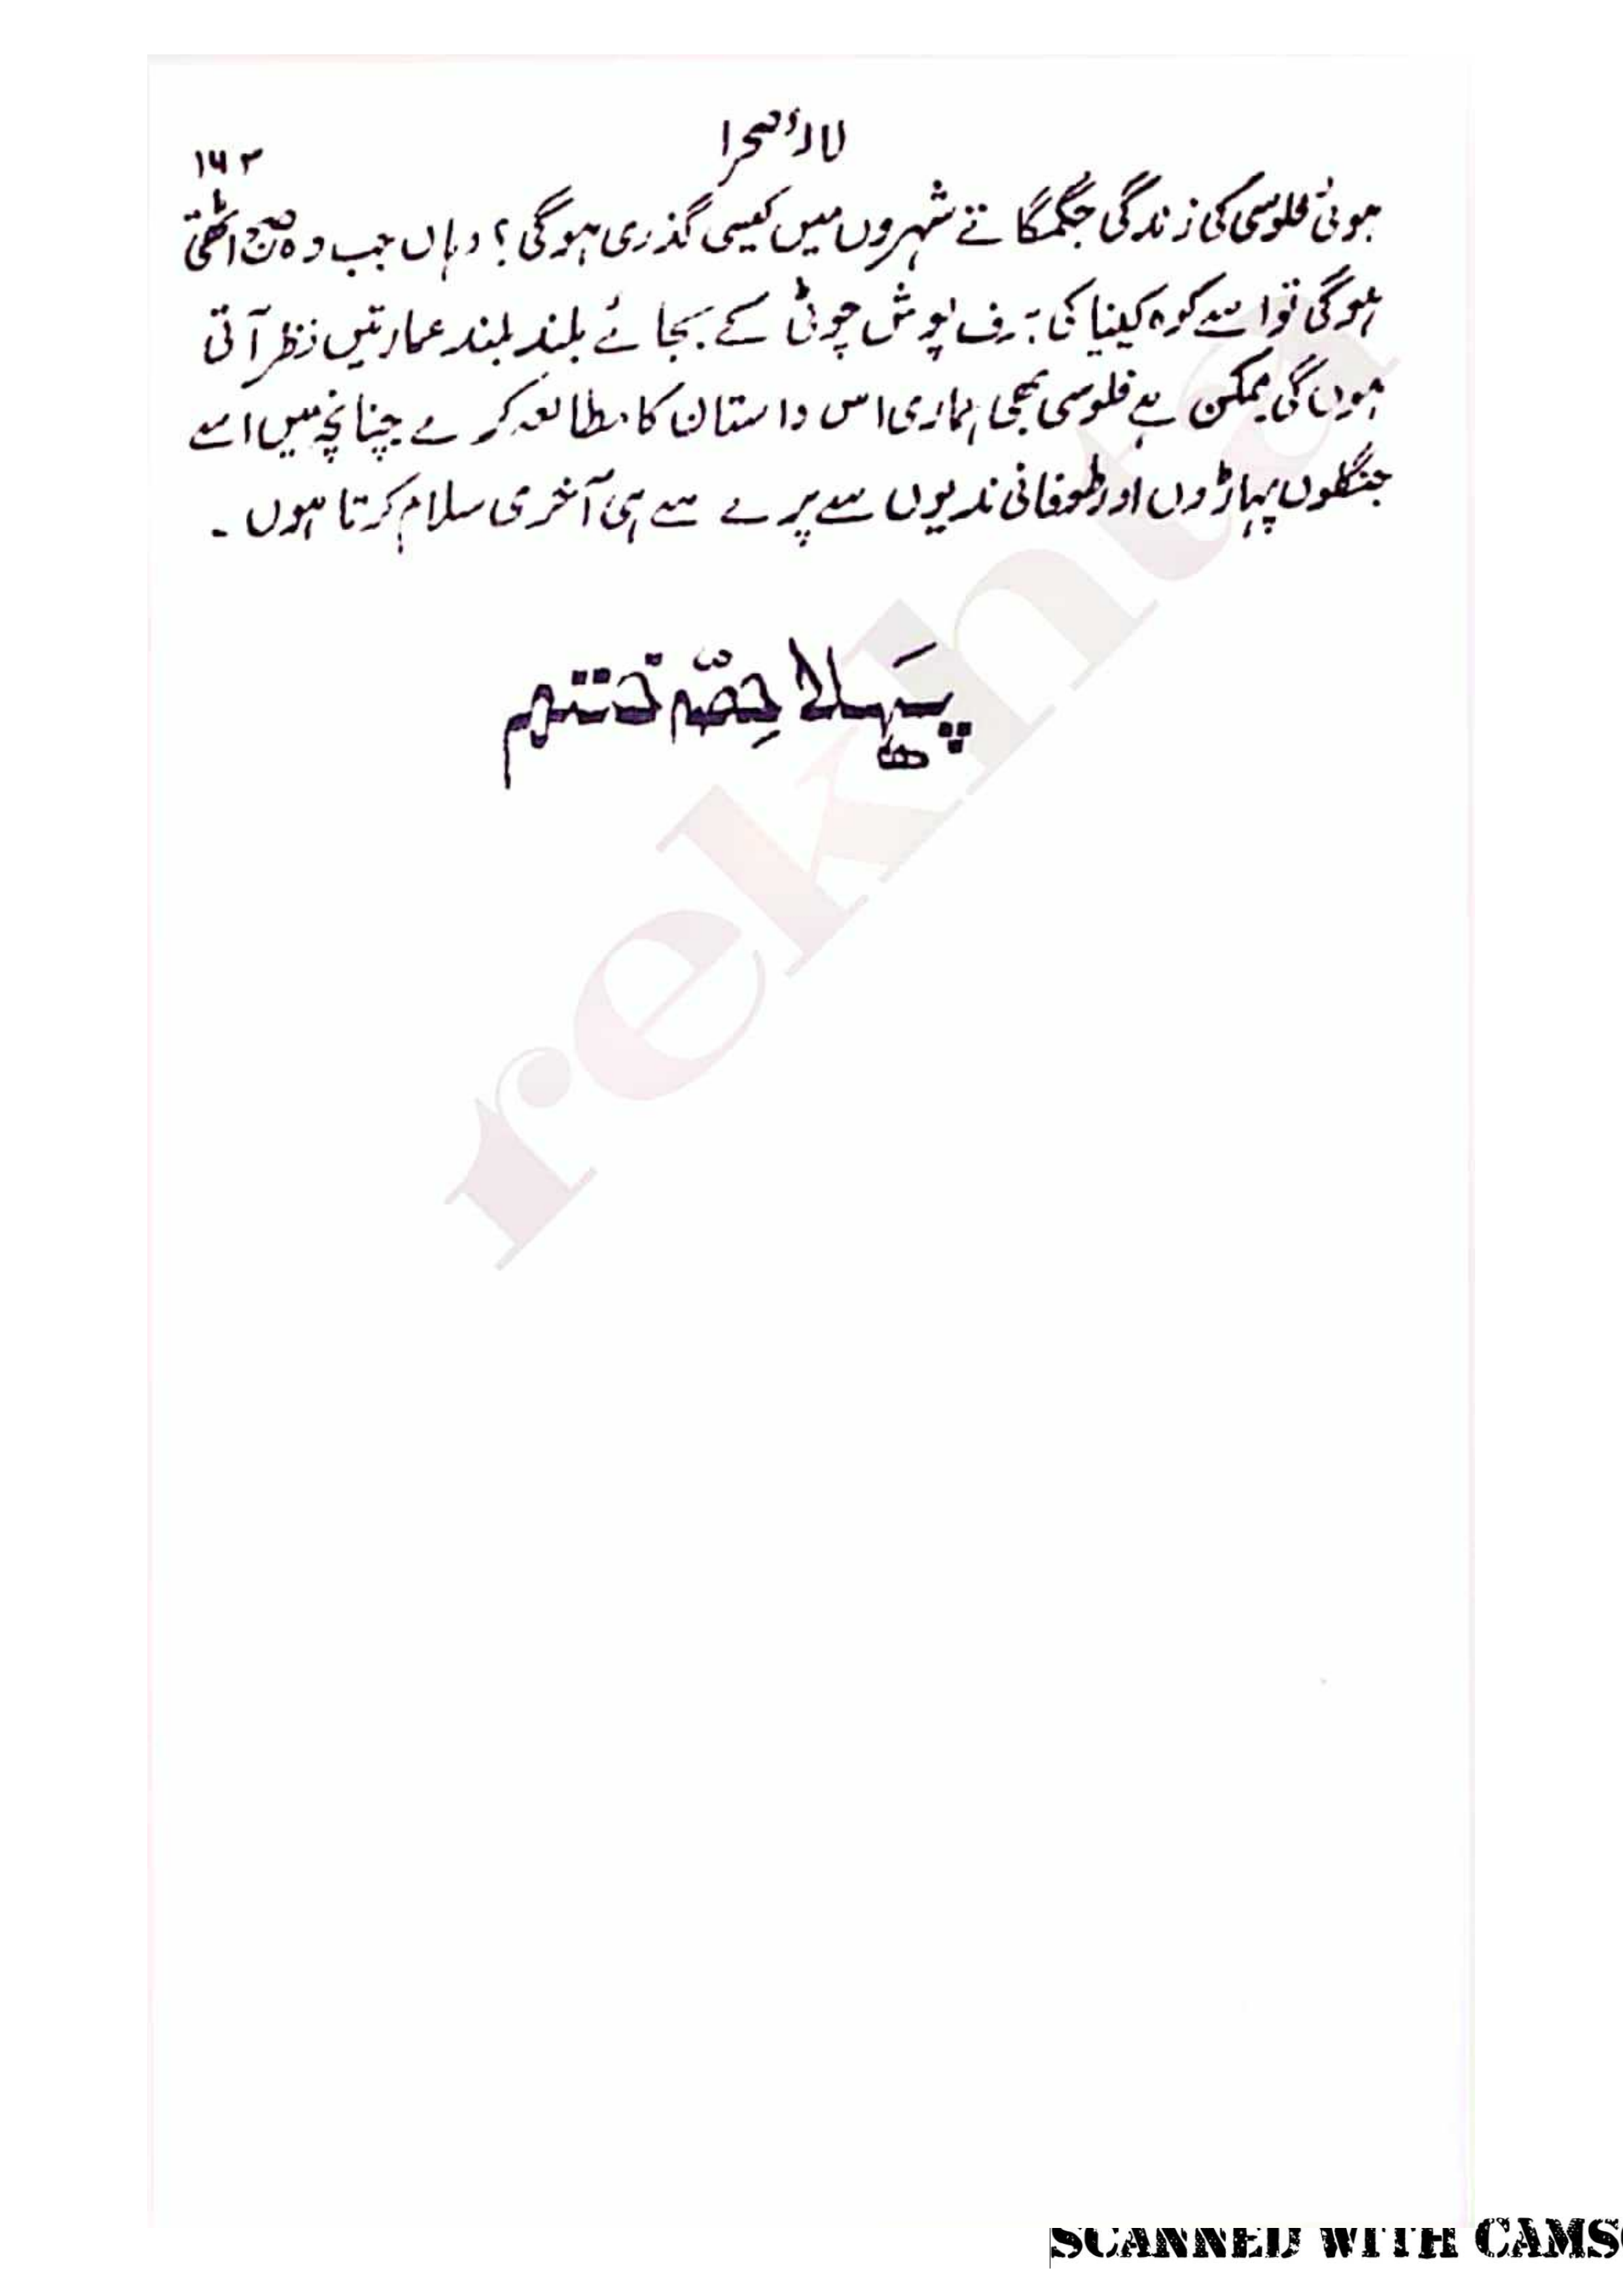 لالۂ صحرا
۱۶۳
ہوئی فلوسی کی زندگی جگمگاتے شہروں میں کیسی گذری ہوگی؟ وہاں جب وہ صبح اٹھتی
ہوگی تو اسے کوہ کینیا کی برف پوش چوٹی کے بجائے بلند بلند عمارتیں نظر آتی
ہوں گی ممکن ہے فلوسی بھی ہماری اس داستان کا مطالعہ کرے چنانچہ میں اسے
جنگلوں پہاڑوں اور طوفانی ندیوں سے پرے سے ہی آخری سلام کرتا ہوں۔
پہلا حِصّہ ختم
rekhta
SCANNED WITH CAMS